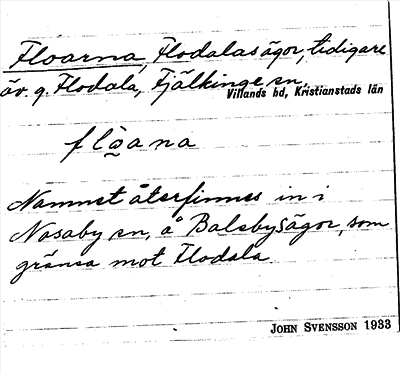 Floarna, Flodalasägor, tidigare
äv. g. Flodala, Fjälkinge sn,
Villands hd, Kristianstads län
flòana
Namnet återfinnes in i
Nosaby sn, å Balsbysägor, som
gränsa mot Flodala
JOHN SVENSSON 1933